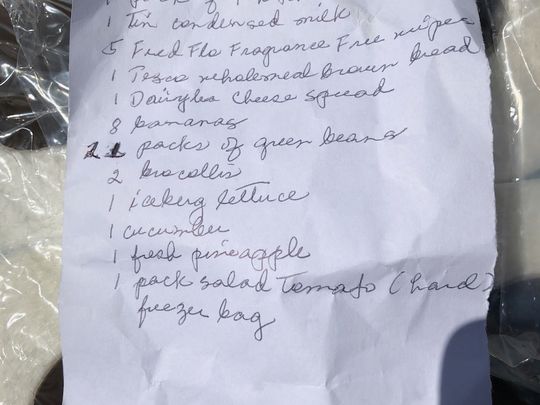 1 Tin condensed milk
5 Fred Flo Fragrance Free wipes
1 Tesco wholemeal brown bread
1 Dairylea cheese spread
8 bananas
2 packs of green beans
2 brocollis
1 iceberg lettuce
1 cucumber
1 fresh pineapple
1 pack salad Tomato (hard)
freezer bag